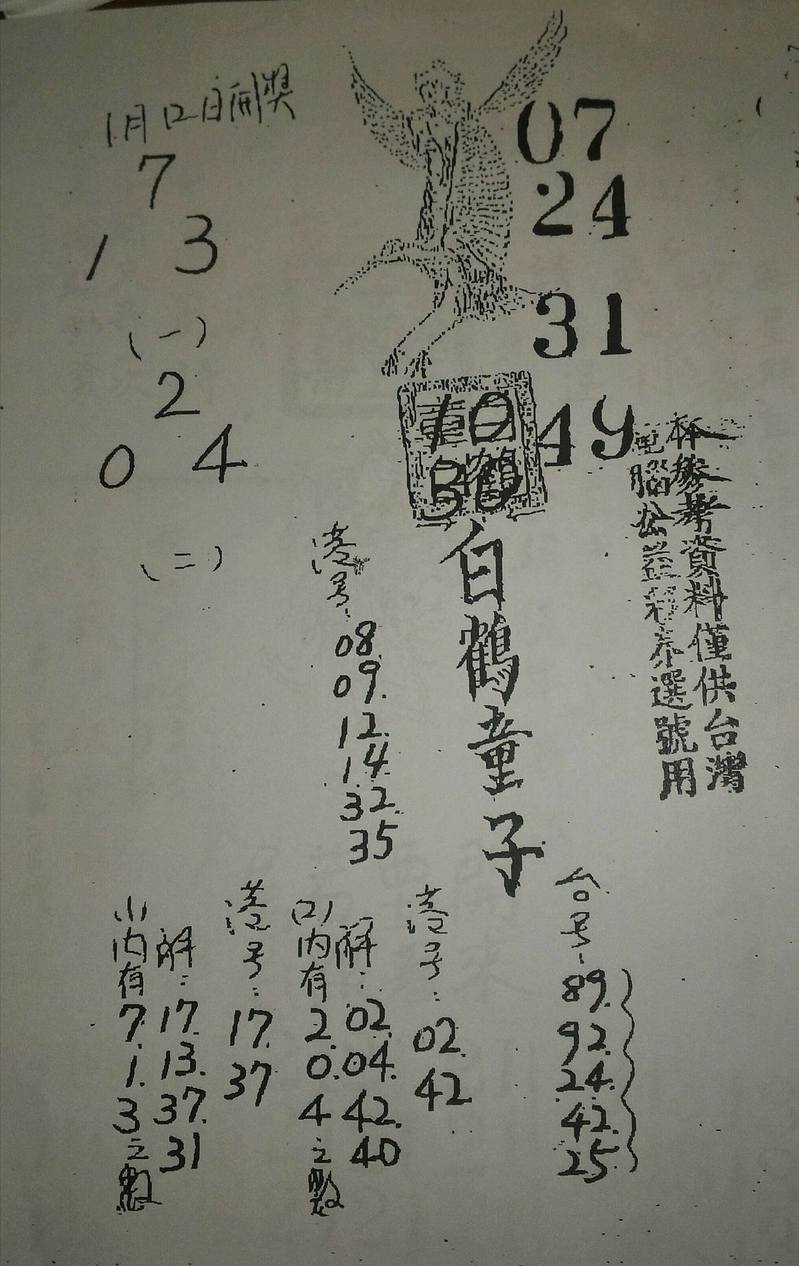 1月12日開獎
7
1 3
(一)
2
0 4
(二)
07
24
31
49
10
30
白鶴童子
本參考資料僅供台灣
電腦公益彩券選號用
港号:
08.
09.
12.
14.
32.
35
(1)內有7.1.3之數
解:17.13.37.31
港号:17.37
(2)內有2.0.4之數
解:02.04.42.40
港号:02.42
台号:89.92.24.42.25